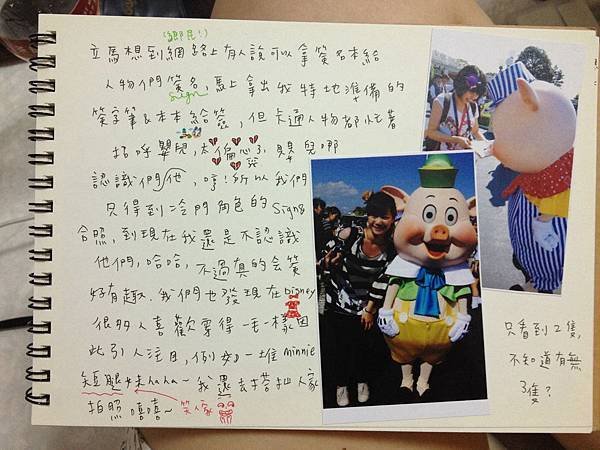 (鄉民!)
立馬想到網路上有人說可以拿簽名本給
人物們簽名 馬上拿出我特地準備的
sign
簽字筆&本本給簽, 但卡通人物都忙著
招呼嬰兒, 太偏心了, 嬰兒哪
認識們他, 哼! 所以我們
只得到冷門角色的 Sign&
合照, 到現在我還是不認識
他們, 哈哈, 不過真的会簽
好有趣. 我們也發現在Disney
很多人喜歡穿得一毛一樣因
此引人注目, 例如一堆minnie
短腿妹haha~ 我還去搭訕人家
拍照 嘻嘻~ 笑人家
只看到2隻,
不知道有無
3隻?